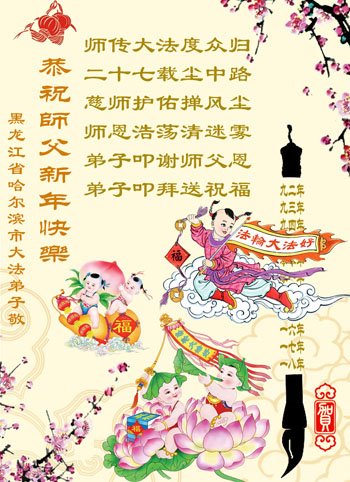 师传大法度众归
二十七载尘中路
慈师护佑掸风尘
师恩浩荡清迷雾
弟子叩谢师父恩
弟子叩拜送祝福
恭祝師父新年快樂
黑龙江省哈尔滨市大法弟子敬
九二年
九三年
九四年
法輪大法好
福
一六年
一七年
一八年
福
賀